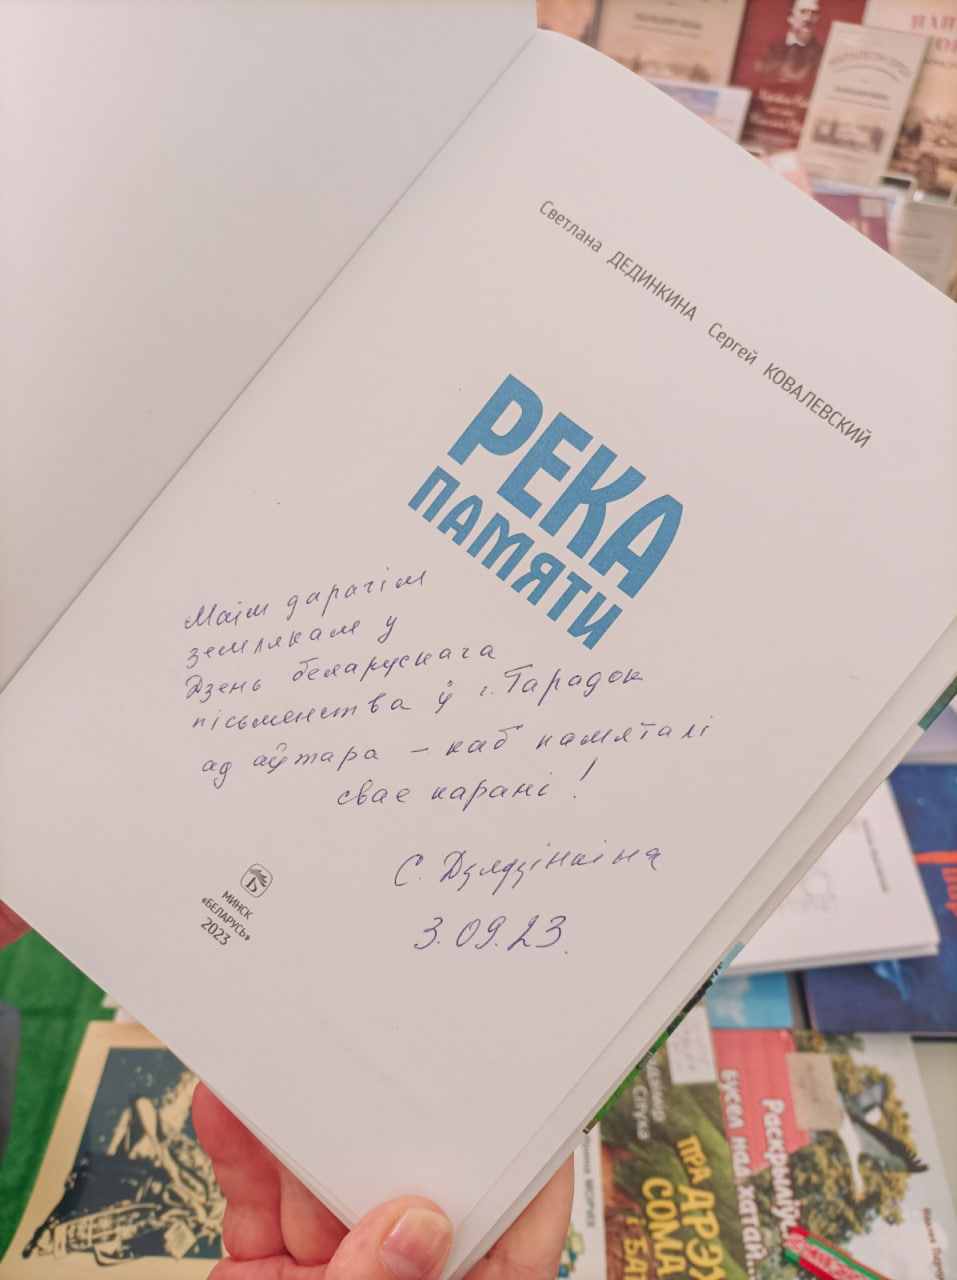 Светлана ДЕДИНКИНА Сергей КОВАЛЕВСКИЙ
РЕКА
ПАМЯТИ
Маім дарагім
землякам у
Дзень беларускага
пісьменства ў г. Гарадок
ад аўтара – каб памяталі
свае карані!
С. Дзядзінкіна
3.09.23.
МИНСК
«БЕЛАРУСЬ»
2023
ПРА
СОМА
Раскрылу
бусел над хатай...